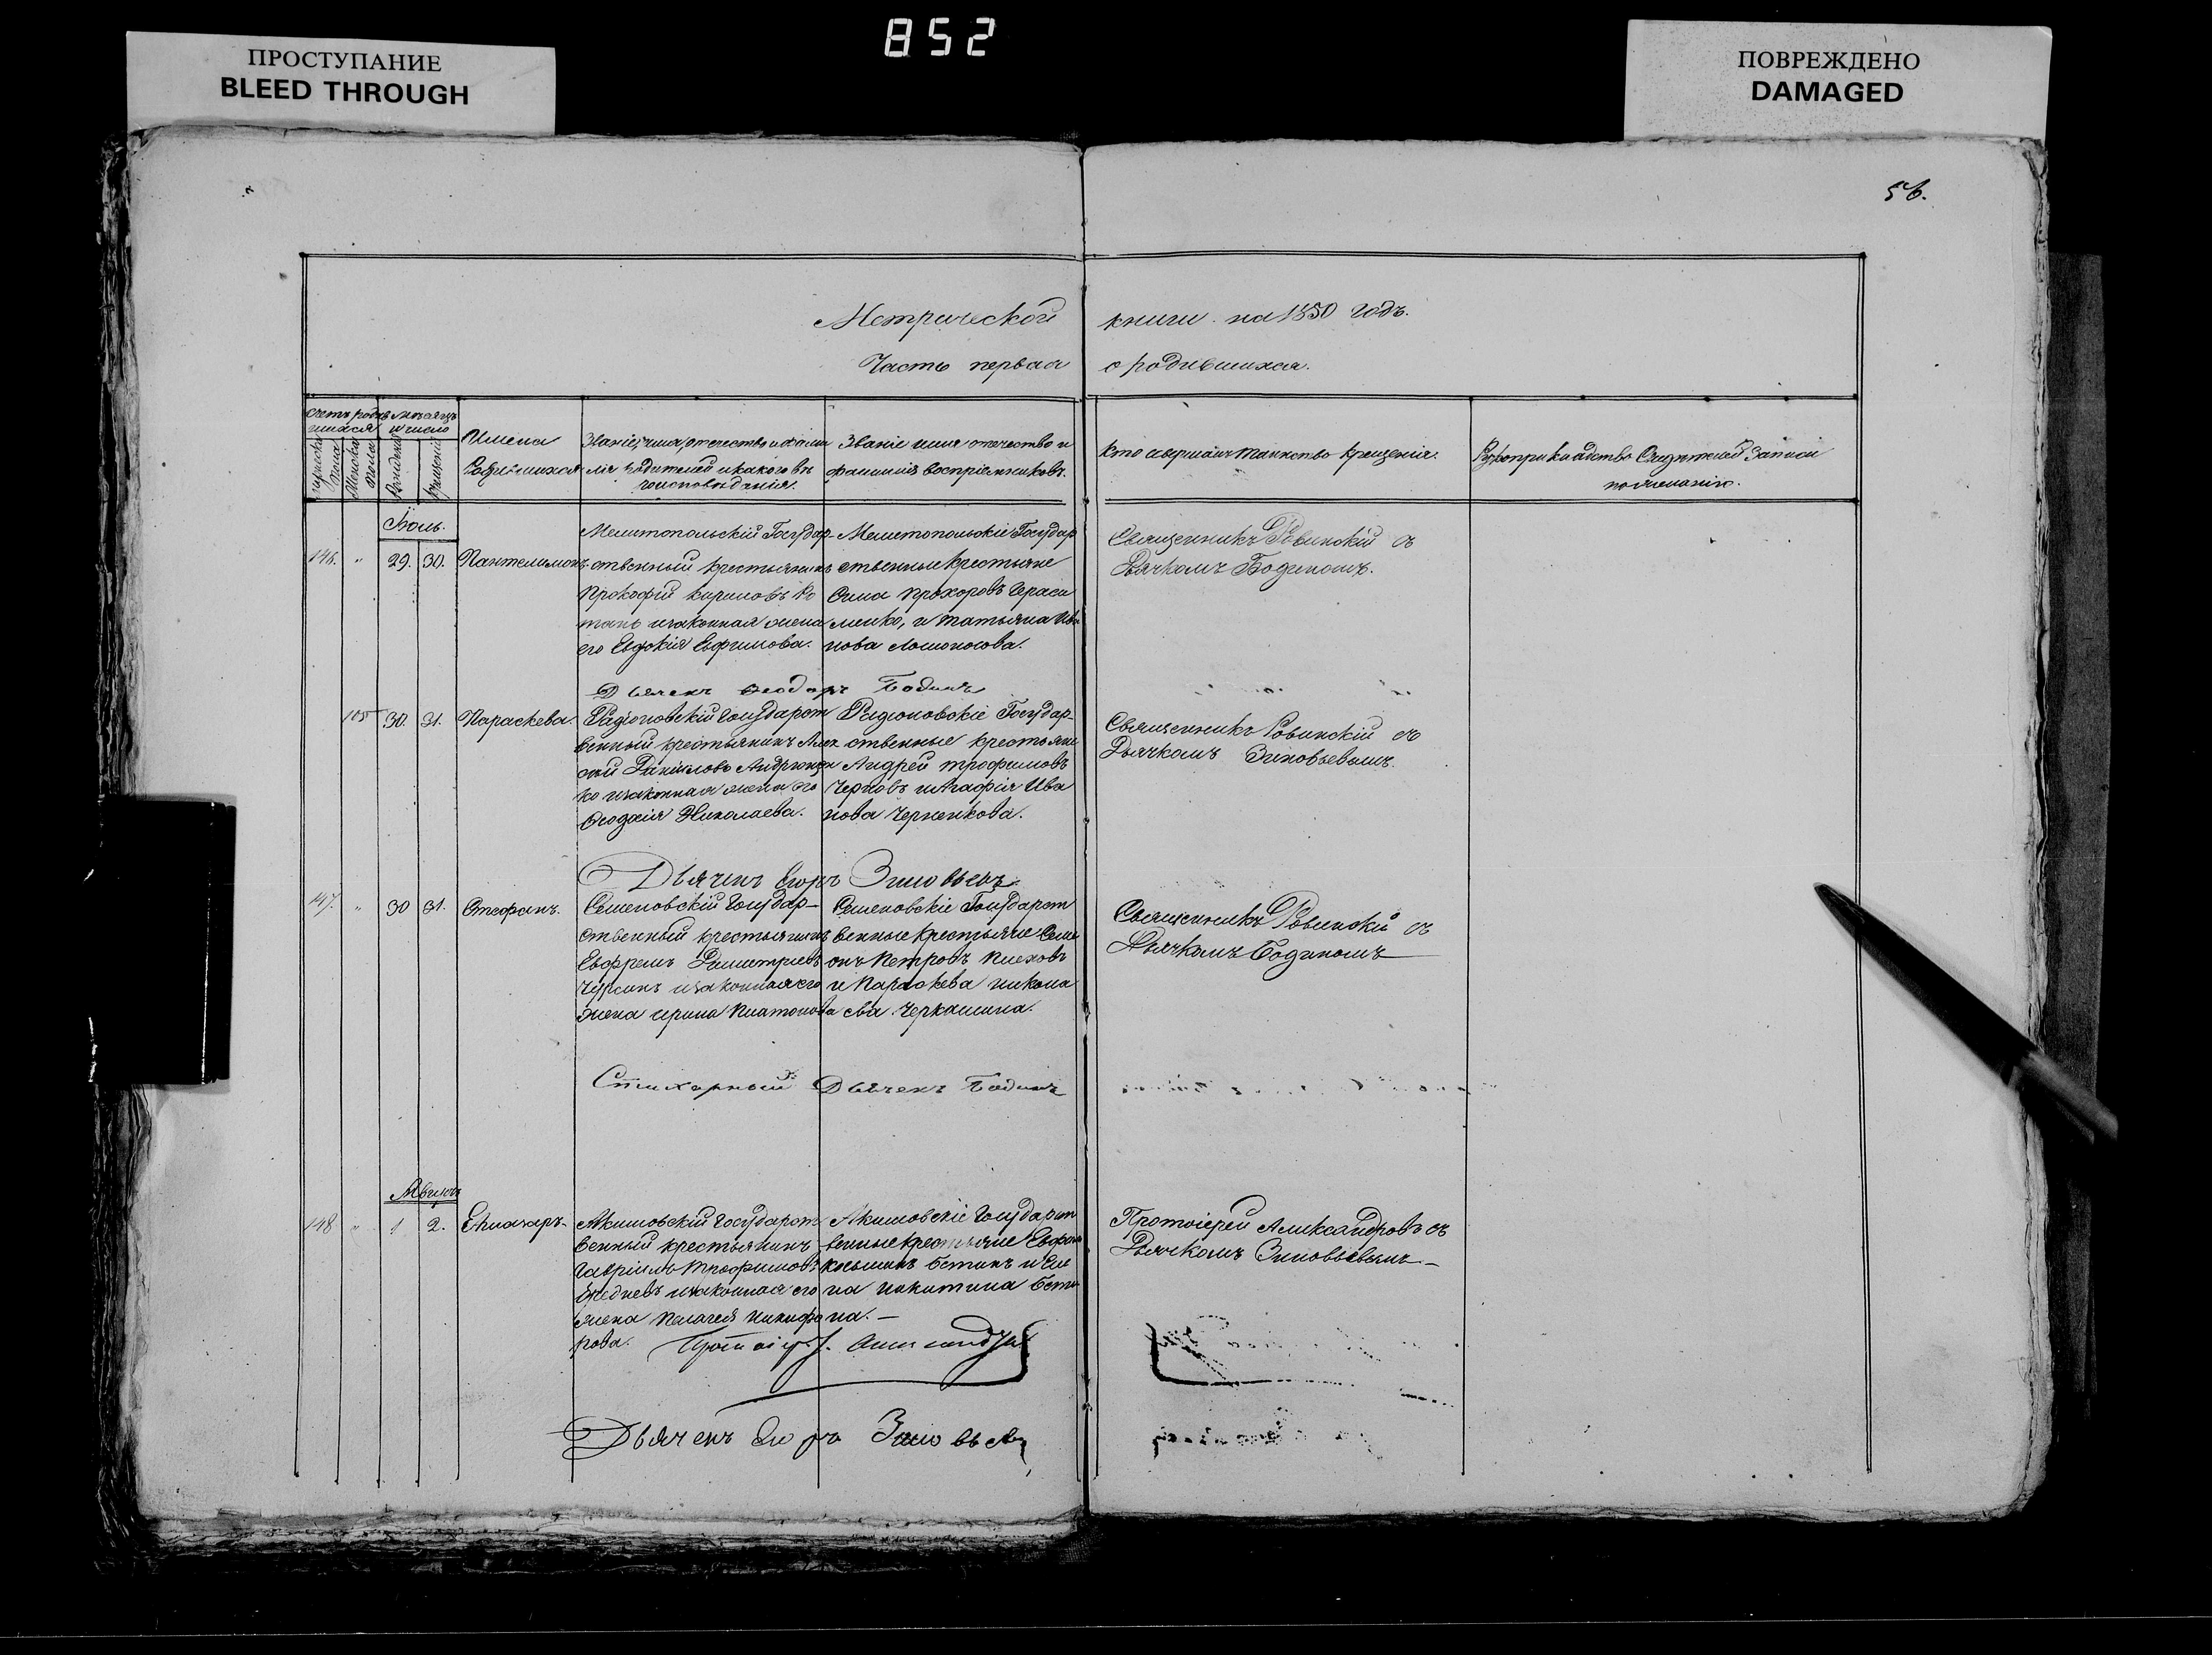 852
ПРОСТУПАНИЕ
BLEED THROUGH
ПОВРЕЖДЕНО
DAMAGED
56.
Метрической книги на 1850 годъ.
Часть первая о родившихся.
Имена
Родившихся
Званіе, имя, отечество и фами
лія родителей и какого вѣ
роисповѣданія.
Званіе имя отечество и
фамилія воспріемниковъ.
Кто совершалъ таинство крещенія.
Рукоприкладство Свидѣтелей записи
по желанію.
Іюль.
146. " 29. 30. Пантелимонъ
Мелитопольскій Государ-
ственный крестьянинъ
Прокофій Кириловъ Ко
тань изаконная жена
его Евдокія Ефимова.
Мелитопольскіе Государ
ственные крестьяне
Сима Прохоровъ Гераси
менко, и Татьяна Ива
нова Ломоносова.
Священникъ Ровинскій съ
Дьячкомъ Бодиномъ.
Дьячекъ Ѳеодоръ Бодинъ
105 30. 31. Параскева.
Радіоновскій Государст
венный крестьянинъ Алек
сѣй Даніиловъ Андрющен
ко изаконная жена его
Ѳеодосія Николаева.
Радіоновскіе Государ-
ственные крестьяне
Андрей Трофимовъ
Черновъ иАгафія Ива
нова Черненкова.
Священникъ Ровинскій съ
Дьячкомъ Зиновьевымъ.
Дьячекъ Егоръ Зиновьевъ
147. " 30 31. Стефанъ.
Семеновскій Государ-
ственный крестьянинъ
Евфремъ Димитріевъ
Чурсинъ изаконная его
жена Ирина Платонова
Семеновскіе Государст
венные крестьяне Семе
онъ Петровъ Плеховъ
и Параскева Никола
ева Черкашина.
Священникъ Ровинскій съ
Дьячкомъ Бодиномъ
Стихарный Дьячекъ Бодинъ
Августъ
148 " 1 2. Елиазаръ.
Акимовскій Государст
венный крестьянинъ
Гавріилъ Трофимовъ
изаконная его
жена Пелагея Никифо
рова.
Акимовскіе Государст
венные крестьяне
Бетинъ и Еле
на Никитина Бети
на.
Протоіерей Александровъ съ
Дьячкомъ Зиновьевымъ.
Дьячекъ Егоръ Зиновьевъ